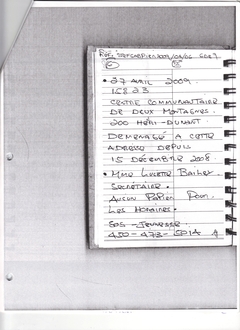 27 AVRIL 2009.
15H 23
CENTRE COMMUNAUTAIRE
DE DEUX MONTAGNES.
200 HENRI-DUNANT
DEMENAGÉ A CETTE
ADRESSE DEPUIS
15 DÉCEMBRE 2008.
• MME LUCETTE
SECRÉTAIRE.
AUCUN PAPIER POUR
LES HORAIRES.
450-473-